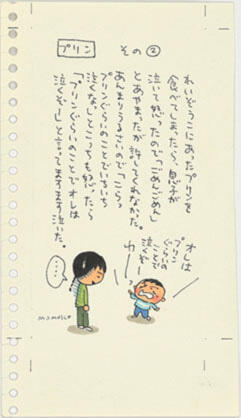 プリン
その②
れいぞうこにあったプリンを
食べてしまったら、息子が
泣いて怒ったので「ごめんごめん」
とあやまったが許してくれなかった。
あんまりうるさいので「こらっ
プリンぐらいのことでいちいち
泣くなっ」とこっちも怒ったら
「プリンぐらいのことでオレは
泣くぞー」と言ってますます泣いた。
オレは
プリン
ぐらいの
ことで
泣くぞー